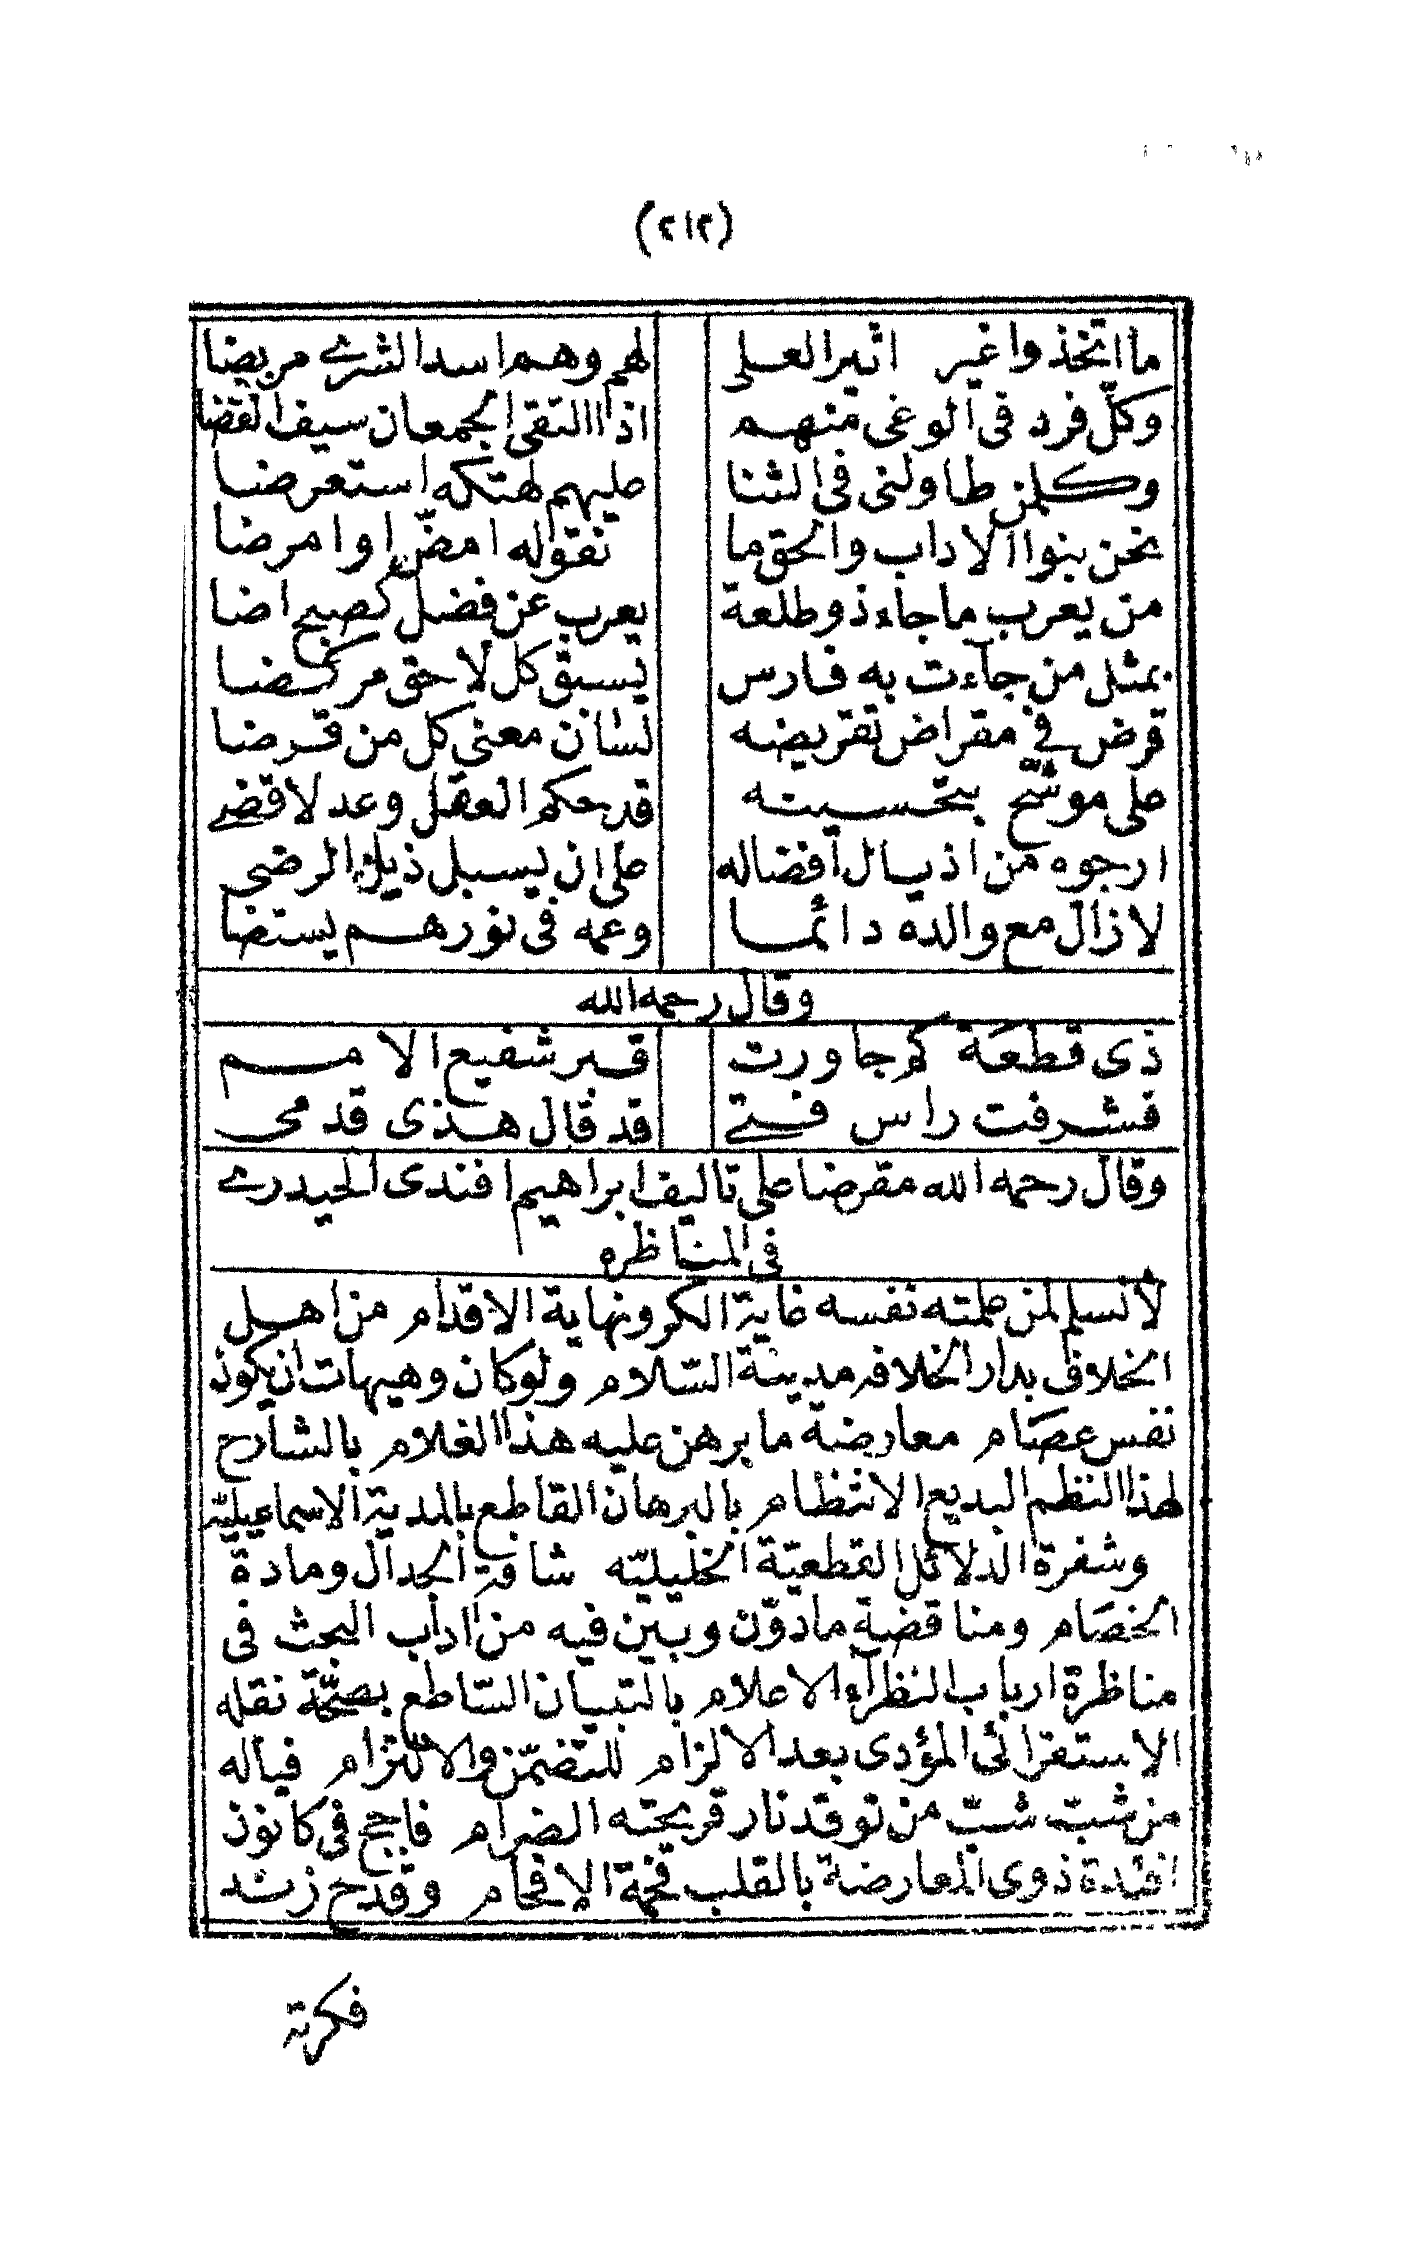 (٢١٢)
ما اتخذوا غير اثير العلى لهم وهم اسد الشرے مربضا
وكلّ فرد فى الوغى منهم اذا التقى الجمعان سيف القضا
وكلمن طاولنى فى الثنا عليهم لهتكه استعرضا
نحن بنوا الاداب والحق ما نقوله امضّ او امرضا
من يعرب ماجاء ذو طلعة يعرب عن فضل كصبح اضا
بمثل من جآءت به فارس يسبق كل لاحق مركضا
قرض فے مقراض تقريضه لسان معنى كل من قرضا
على موشح بتحسيته قد حكم العقل وعدلا قضے
ارجوه من اذيال افضاله على ان يسبل ذيل الرضى
لازال مع والده دائما وعمه فى نورهم يستضا
وقال رحمه الله
ذى قطعة كم جاورت قبر شفيع الامم
فشرفت راس فتے قد قال هذى قدمى
وقال رحمه الله مقرضا على تاليف ابراهيم افندى الحيدرے
فى المناظره
لانسلم لمن علمته نفسه غاية الكر ونهاية الاقدام من اهل
الخلاف بدار الخلافه مدينة السّلام ولوكان وهيهات ان يكون
نفس عصام معارضة ما برهن عليه هذا الغلام بالشارح
لهذا النظم البديع الانتظام بالبرهان القاطع بالمدية الاسماعيليّة
وشفرة الدلائل القطعيّة الخليليّه شاقة الجدال ومادة
الخصام ومناقضة مادوّن وبين فيه من اداب البحث فى
مناظرة ارباب النظرآء الاعلام بالتبيان السّاطع بصحّة نقله
الاستقرائى المؤدى بعد الالزام للتضمّن والالتزام فياله
من شبّ شبّ من توقد نار قريحته الضرام فاجج فى كانون
افئدة ذوى المعارضة بالقلب فحمة الافحام وقدح زند
فكرته